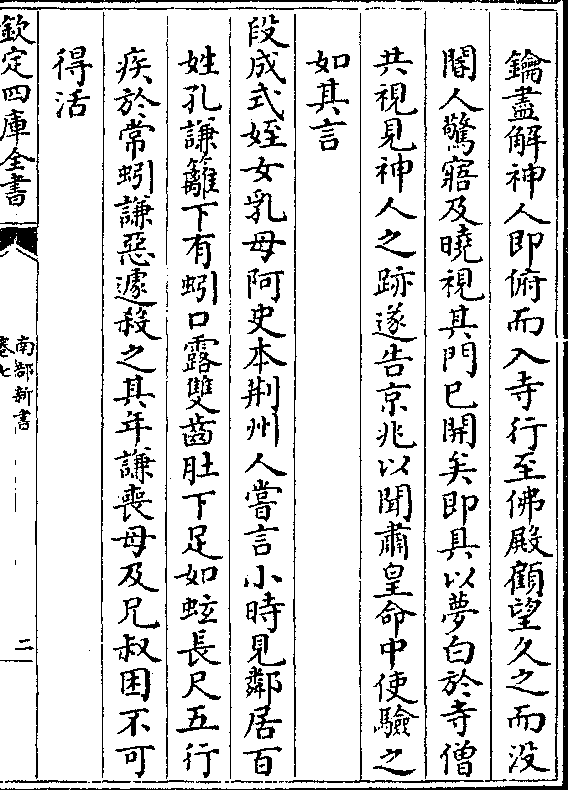 鑰盡解神人即俯而入寺行至佛殿顧望久之而沒
閽人驚寤及曉視其門已開矣即具以夢白於寺僧
共視見神人之跡遂告京兆以聞肅皇命中使驗之
如其言
段成式姪女乳母阿史本荆州人嘗言小時見鄰居百
姓孔謙籬下有蚓口露雙齒肚下足如蚿長尺五行
疾於常蚓謙惡遽殺之其年謙喪母及兄叔困不可
得活
欽定四庫全書
南部新書
卷七
二